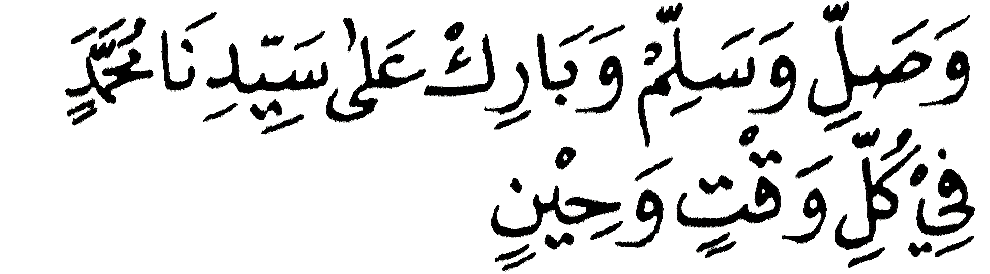 وَصَلِّ وَسَلِّمْ وَبَارِكْ عَلٰى سَيِّدِنَا مُحَمَّدٍ
فِيْ كُلِّ وَقْتٍ وَحِيْنٍ